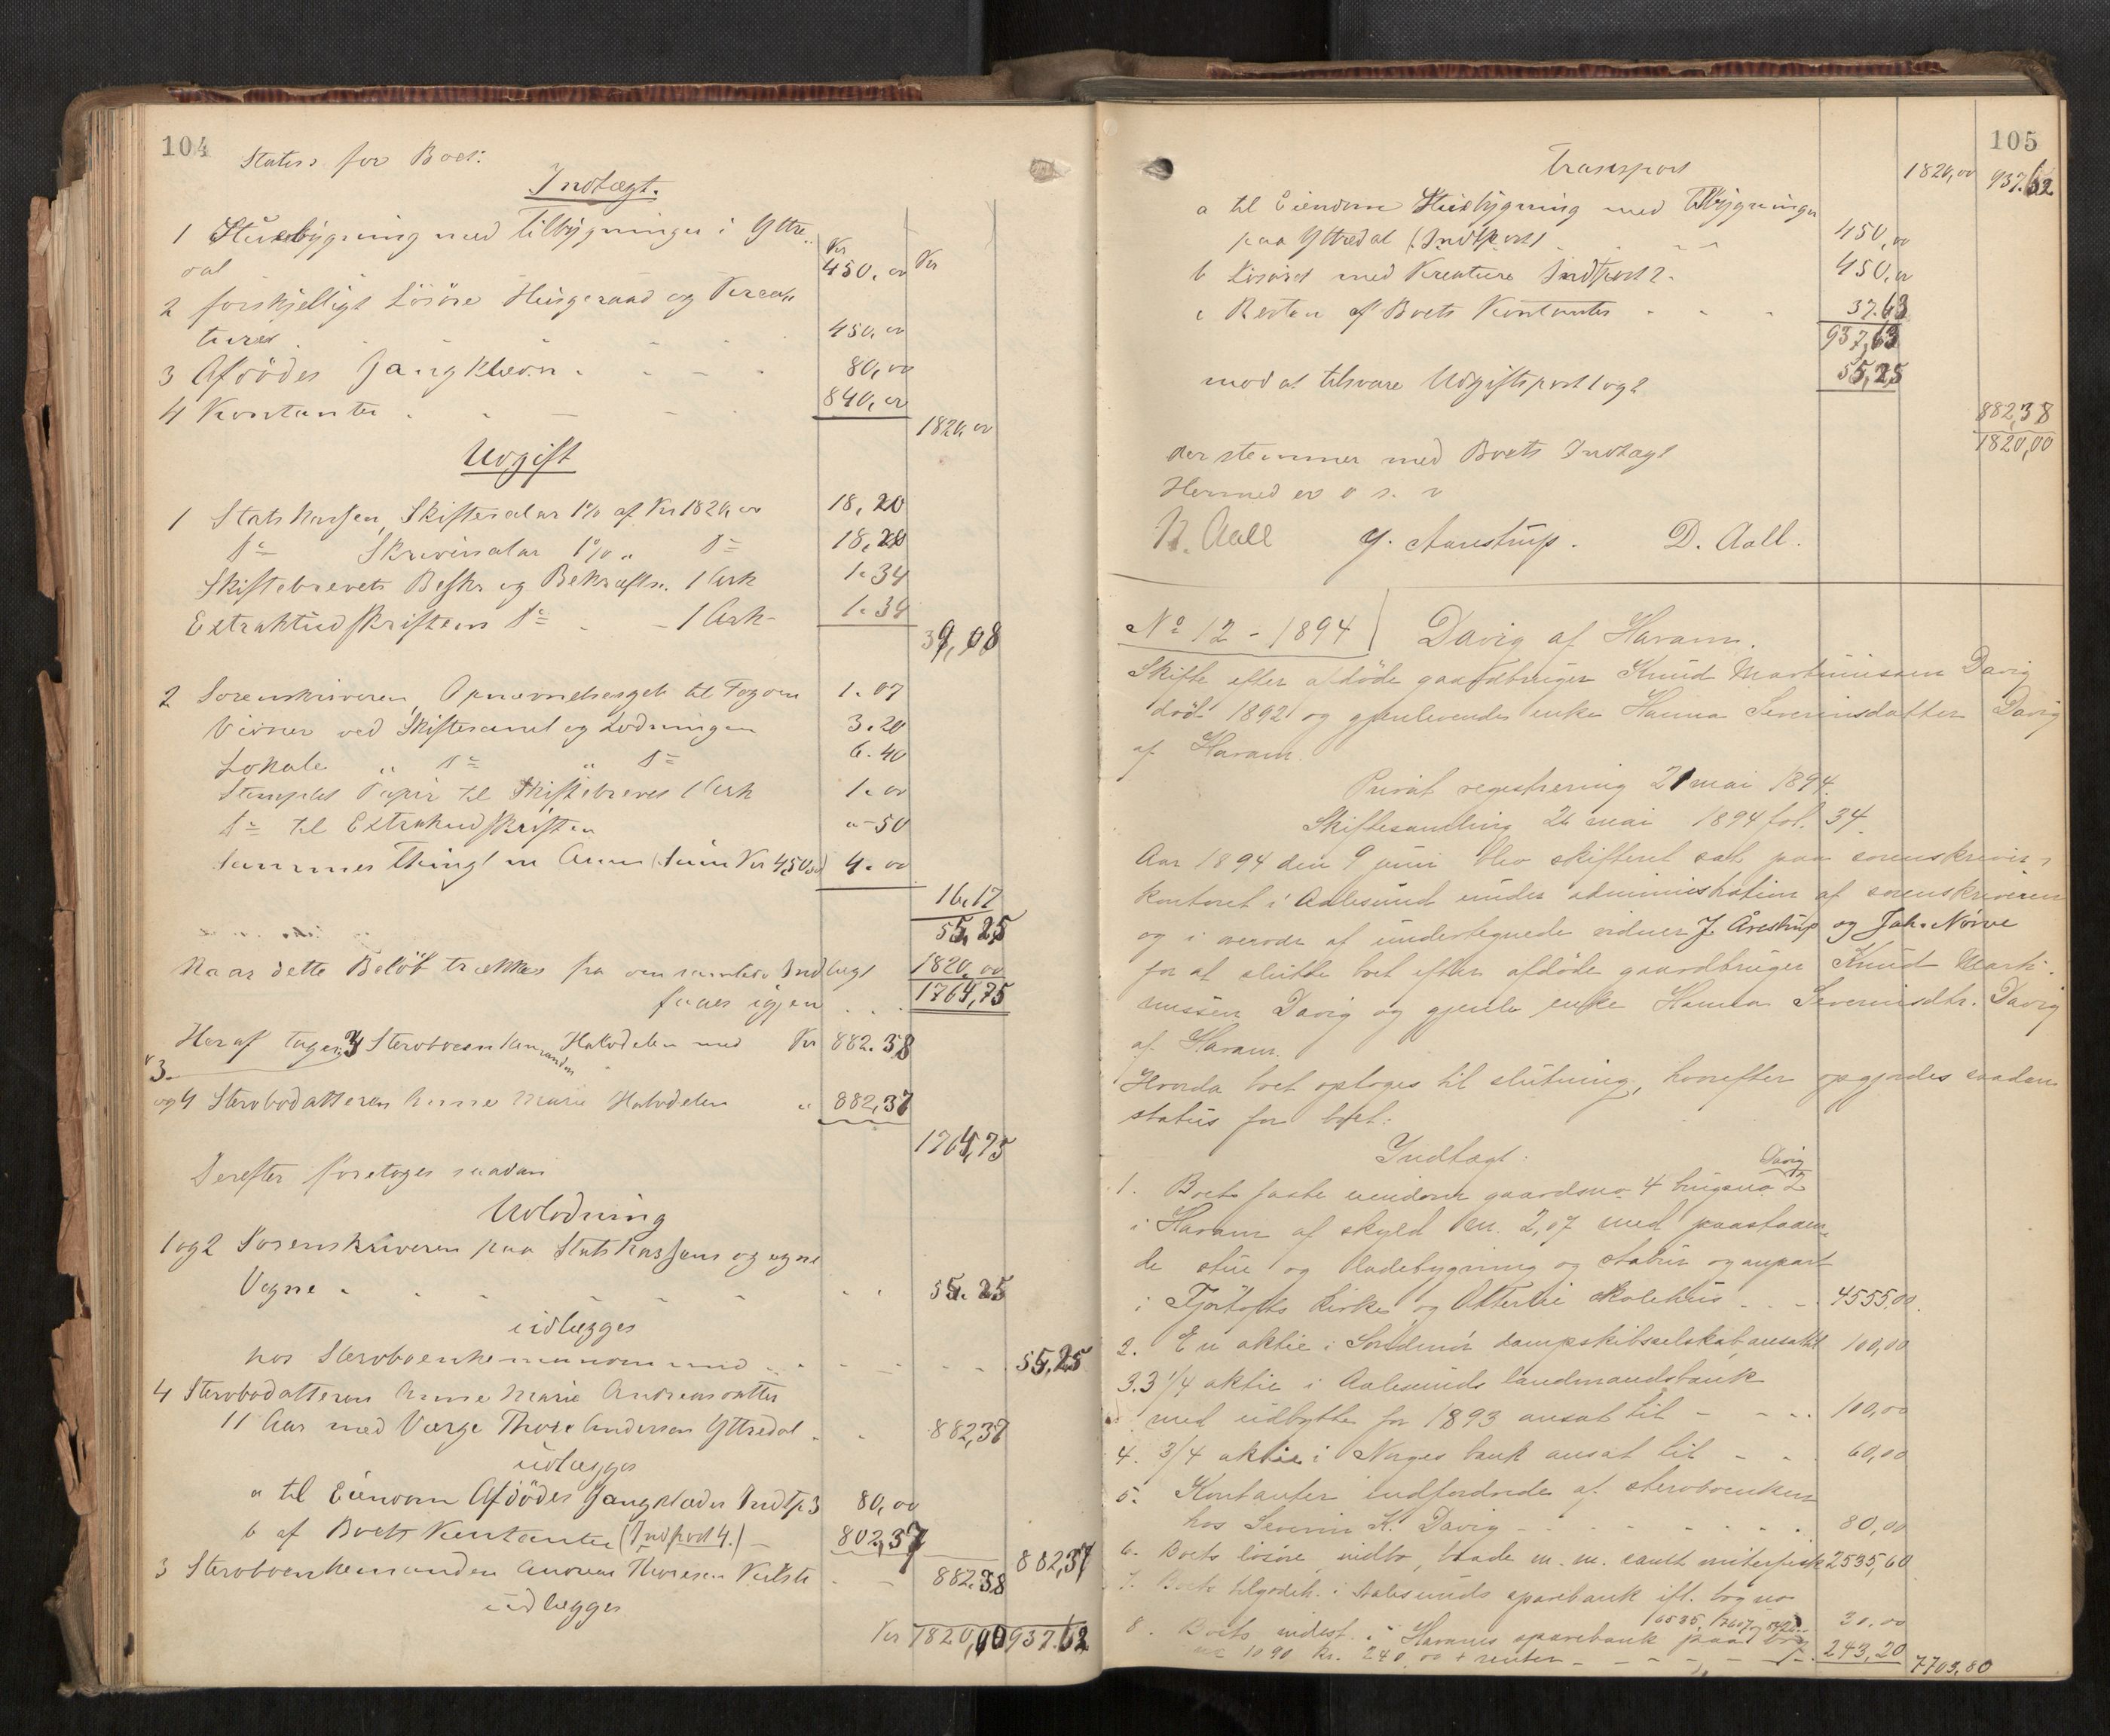 104
Status for Boet:
Indtægt.
1 Huusbygning med Tilbygninger i Yttre-
dal
Kr
450,00
Kr
2 forskjelligt Løsøre Husgeraad og Krea-
turer
450,00
3 Afdødes Gangklæder
80,00
4 Kontanter
840,00
1820,00
Udgift
1 Statskassen Skiftesalær 1% af Kr 1820,00
18,20
Do Skriversalær 1% " Do
18,20
Skiftebrevets Beskr og Bekræftn. 1 Ark
1.34
Extraktudskriftens Do - 1 Ark -
1.34
39,08
2 Sorenskriveren, Opnævnelsesgeb til
1.07
Vidner ved Skiftesaml og Lodningen
3.20
Lokale " Do " Do
6.40
Stemplet Papir til Skiftebrevet 1 Ark
1.00
Do til Extraktudskriften
" 50
Sammes Thingl (Sum Kr 450,00)
4.00
16.17
55,25
Naar dette Beløb trækkes fra den samlede Indtægt
1820,00
faaes igjen
1764,75
Heraf tager 3 Sterboenkemanden Halvdelen med Kr
882.38
3.
og 4 Sterbodatteren Anne Marie Halvdelen "
882,37
1764,75
Derefter foretoges saadan
Udlodning
1 og 2 Sorenskriveren paa Statskassens og egne
Vegne
55.25
udlægges
hos Sterboenkemanden med
55.25
4 Sterbodatteren Anne Marie Andreasdatter
11 Aar med Værge Thore Andersen Yttredal
882,37
udlægges
a til Eiendom Afdødes Gangklæder Indtp 3
80,00
b af Boets Kontanter (Indpost 4.)
802,37
882,37
3 Sterboenkemanden Andreas Thoresen
882.38
udlægges
Kr 1820,00 937.62
105
Transport
1820,00 937.62
a til Eiendom Husbygning med Tilbygninger
paa Yttredal (Indtpost 1
450,00
b Løsøret med Kreature Indtpost 2.
450,00
c Resten af Boets Kontanter
37.63
937,63
mod at tilsvare Udgiftspost 1 og 2
55,25
882,38
1820,00
der stemmer med Boets Indtægt
Hermed er o s. v
N. Aall J. Aarestrup. D. Aall.
No 12 - 1894 Davig af Haram.
Skifte efter afdøde gaardbruger Knud Martinussen Davig
død 1892 og gjenlevende enke Hanna Severinsdatter Davig
af Haram.
Privat registrering 21 mai 1894.
Skiftesamling 26 mai 1894 fol. 34.
Aar 1894 den 9 juni blev skifteret sat paa sorenskriver-
kontoret i Aalesund under administration af sorenskriveren
og i overvær af undertegnede vidner J. Årestrup og Joh. Nørve
for at slutte boet efter afdøde gaardbruger Knud Marti-
nussen Davig og gjenle. enke Hanna Severinsdtr. Davig
af Haram.
Hvorda boet optoges til slutning, hvorefter opgjordes saadan
status for boet:
Indtægt:
Davig
1. Boets faste eiendom gaardsno 4 brugsno 2
i Haram af skyld m. 2,07 med paastaaen-
de stue og ladebygning og stabur og anpart
i Fjørtofts kirke og Otterlei skolehus
4555,00.
2. En aktie i Søndmør dampskibsselskab ansat til
100,00
3. 3 1/4 aktie i Aalesunds landmandsbank
med udbytte for 1893 ansat til
100,00
4. 3/4 aktie i Norges bank ansat til
60,00
5. Kontanter indfordrede af sterboenken
hos Severin K. Davig
80,00
6. Boets løsøre, indbo, baade m. m. samt
2535,60
7. Boets tilgodeh. i Aalesunds sparebank ifl. bog no
30,00
8. Boets indest. i Harams sparebank paa bog
no 1090 kr. 240,00 + renter
243,20
7703,80